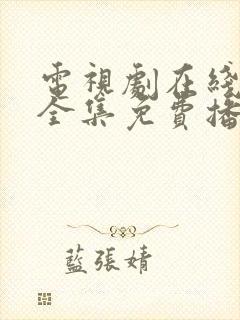 電視劇在綫
全集免費播
藍張婧